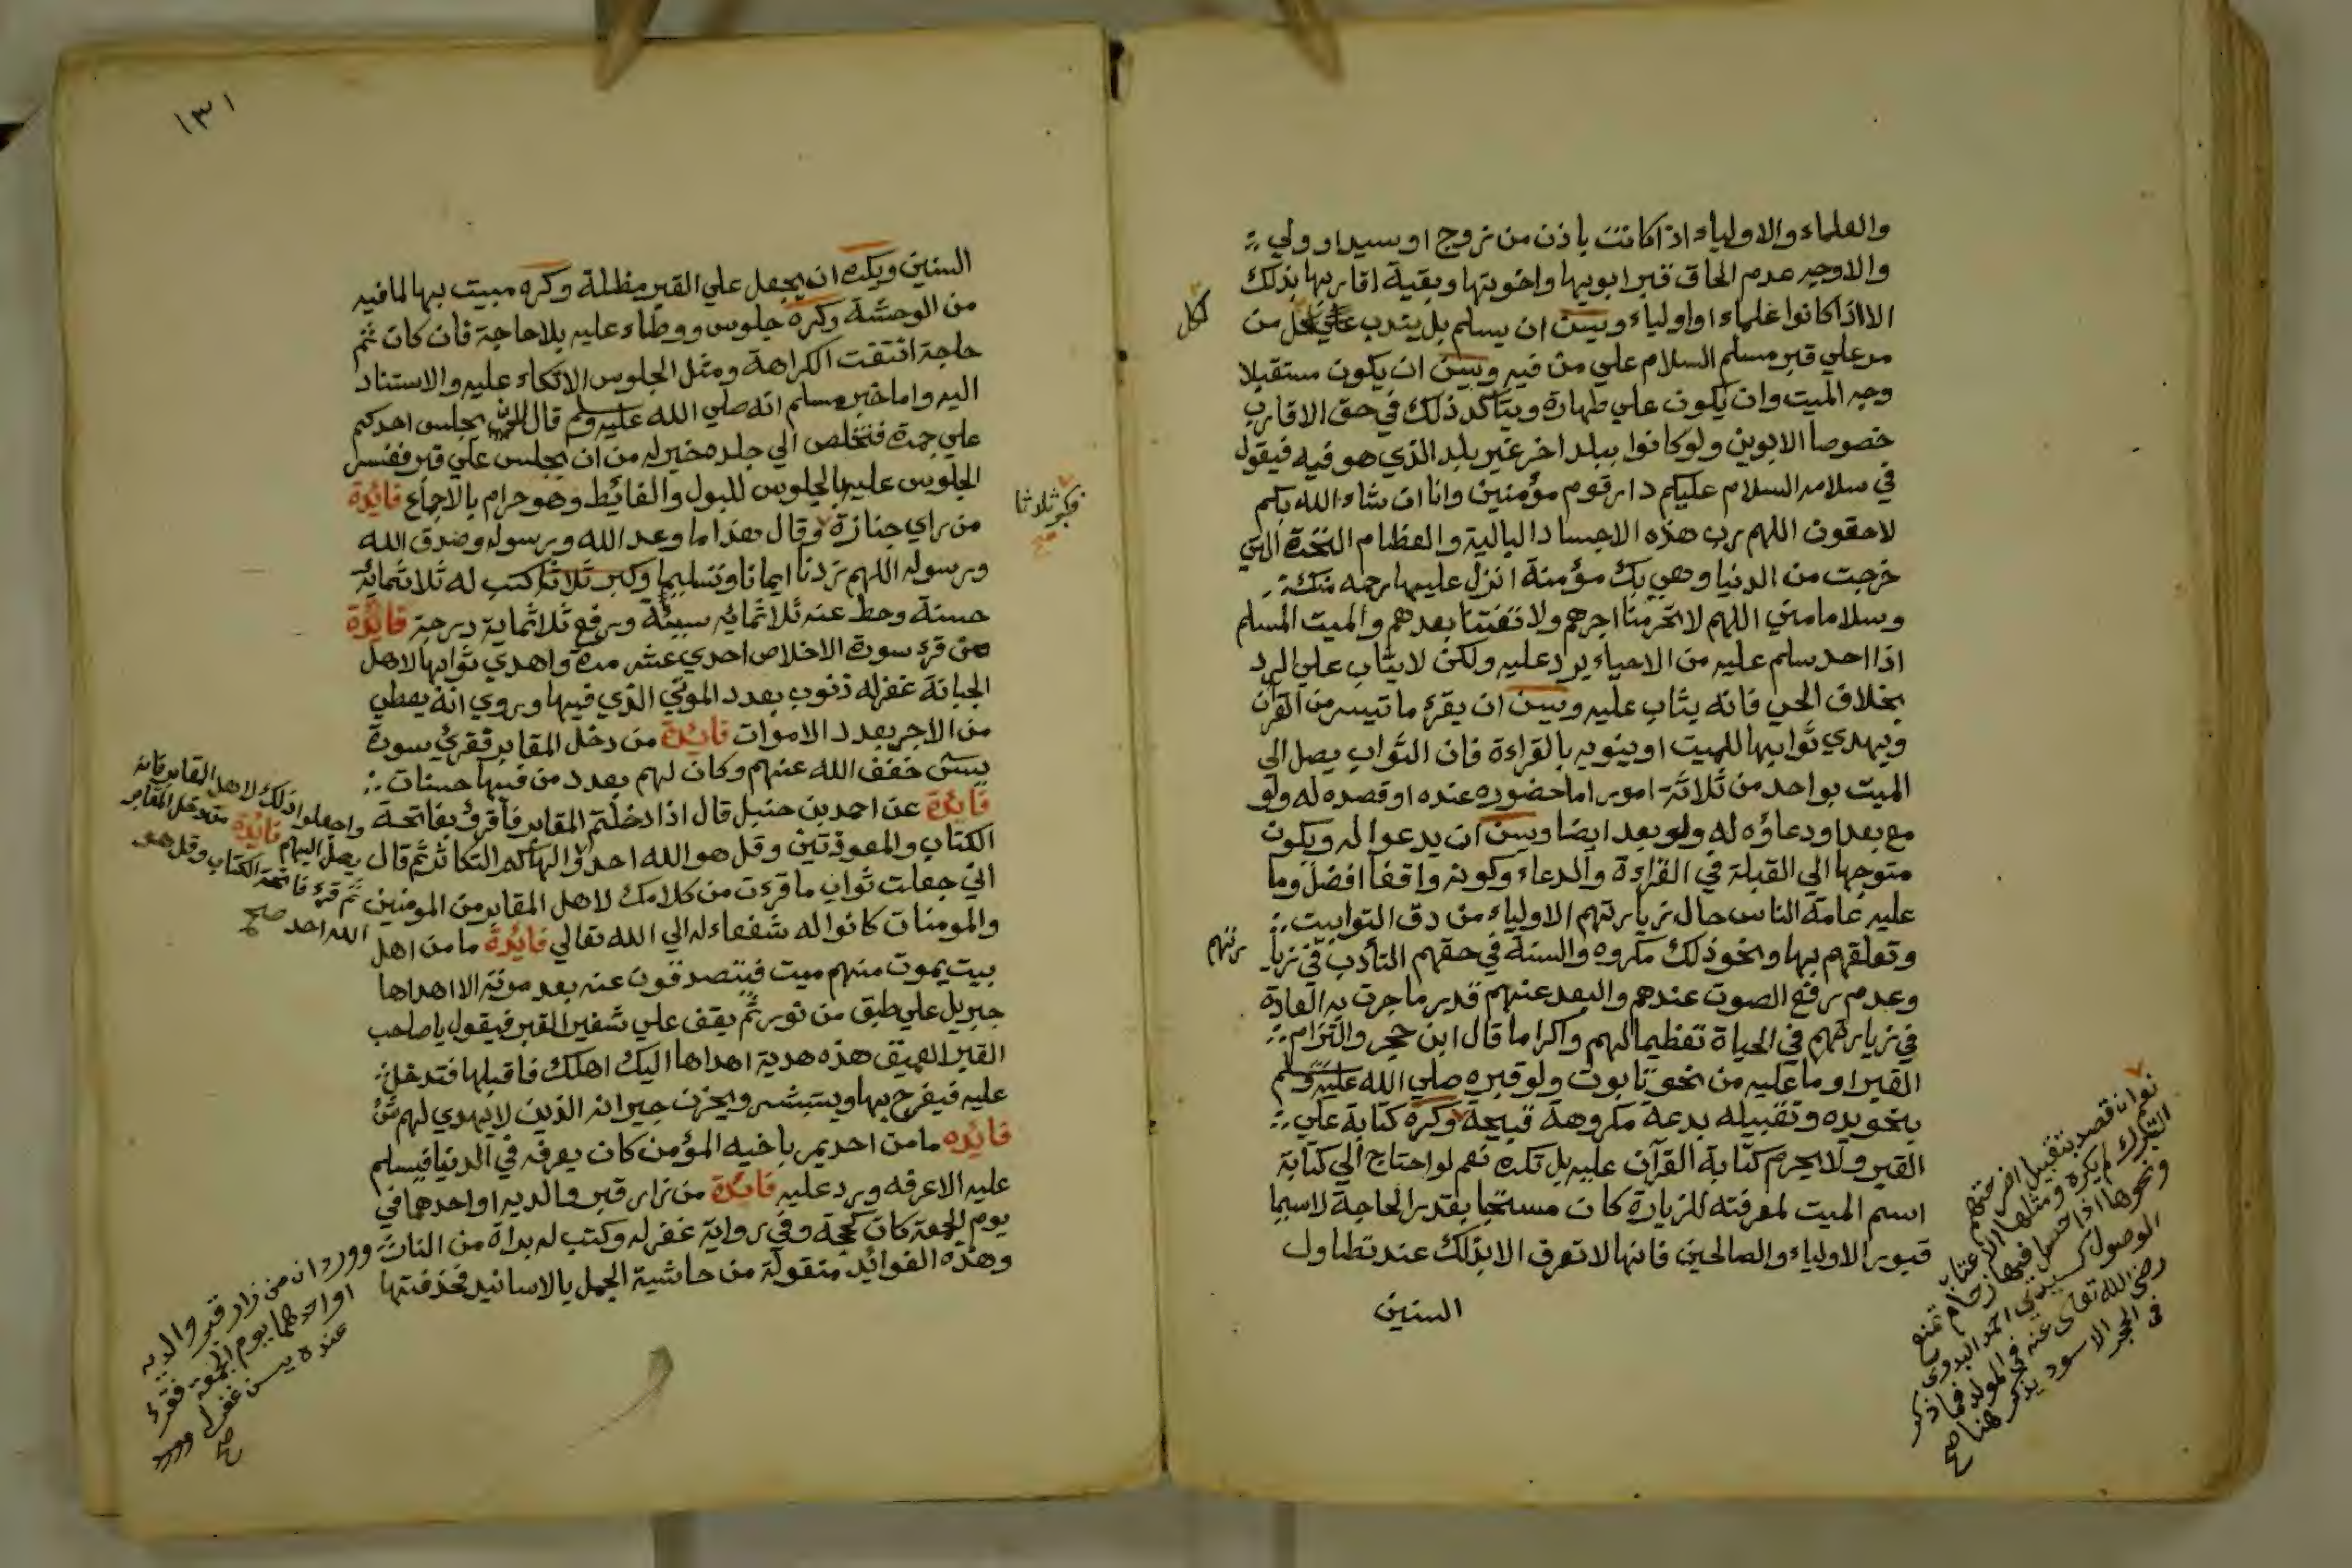 والعلماء والاولياء اذا كانت باذن من زوج او سيد او ولي
والاوجه عدم الحاق قبر ابويها واخوتها وبقية اقاربها بذلك
الا اذا كانوا علماء او اولياء ويسن ان يسلم بل يندب علي كل من
لكل
مر علي قبر مسلم السلام علي من فيه ويسن ان يكون مستقبلا
وجه الميت وان يكون علي طهارة ويتأكد ذلك في حق الاقارب
خصوصا الابوين ولو كانوا ببلد اخر غير بلد الذي هو فيه فيقول
في سلامه السلام عليكم دار قوم مؤمنين وانا ان شاء الله بكم
لاحقون اللهم رب هذه الاجساد البالية والعظام النخرة التي
خرجت من الدنيا وهي بك مؤمنة انزل عليها رحمه منك
وسلاما مني اللهم لا تحرمنا اجرهم ولا تفتنا بعدهم والميت المسلم
اذا احد سلم عليه من الاحياء يرد عليه ولكن لا يثاب علي الرد
بخلاف الحي فانه يثاب عليه ويسن ان يقرء ما تيسر من القرآن
ويهدي ثوابها للميت او ينويه بالقراءة فان الثواب يصل الي
الميت بواحد من ثلاثة امور اما حضوره عنده او قصده له ولو
مع بعد او دعاؤه له ولو بعد ايضا ويسن ان يدعوا له ويكون
متوجها الي القبلة في القراءة والدعاء وكونه واقفا افضل وما
عليه عامة الناس حال زيارتهم الاولياء من دق التوابيت
وتعلقهم بها ونحو ذلك مكروه والسنة في حقهم التأدب في زيا
رتهم
وعدم رفع الصوت عندهم والبعد عنهم قدر ما جرت به العادة
في زيارتهم في الحياة تعظيما لهم واكراما قال ابن حجر والتزام
القبر او ما عليه من نحو تابوت ولو قبره صلي الله عليه وسلم
بنحو يده وتقبيله بدعة مكروهة قبيحة وكره كتابة علي
القبر ولا يحرم كتابة القرآن عليه بل تكره نعم لو احتاج الي كتابة
اسم الميت لمعرفته للزيارة كان مستحبا بقدر الحاجة لاسيما
قبور الاولياء والصالحين فانها لا تعرف الا بذلك عند تطاول
السنين
نعم ان قصد بتقبيل اضرحتهم
التبرك لم يكره ومثلها الاعتاب
ونحوها اذا حصل فيها زحام تمنع
الوصول كسيدي احمد البدوي
رضي الله تعالى عنه في المولد فما ذكر
في الحجر الاسود يذكر هنا صح
١٣١
السنين ويكره ان يجعل علي القبر مظلة وكره مبيت بها لما فيه
من الوحشة وكره جلوس ووطاء عليه بلا حاجة فان كان ثم
حاجة انتفت الكراهة ومثل الجلوس الاتكاء عليه والاستناد
اليه واما خبر مسلم انه صلي الله عليه وسلم قال لان يجلس احدكم
علي جمرة فتخلص الي جلده خير له من ان يجلس علي قبر ففسر
الجلوس عليه بالجلوس للبول والغائط وهو حرام بالاجماع فائدة
من راي جنازة وقال هذا ما وعد الله ورسوله وصدق الله
فكبر ثلاثا
صح
ورسوله اللهم زدنا ايمانا وتسليما وكبر ثلاثا كتب له ثلاثماية
حسنة وحط عنه ثلاثمائه سيئة ورفع ثلاثماية درجة فايدة
من قرء سورة الاخلاص احدي عشر مرة واهدي ثوابها لاهل
الجبانة غفر له ذنوب بعدد الموتي الذي فيها وروي انه يعطي
من الاجر بعدد الاموات فايدة من دخل المقابر فقرئ سورة
يسن خفف الله عنهم وكان لهم بعدد من فيها حسنات
فايدة عن احمد بن حنبل قال اذا دخلتم المقابر فاقرؤ بفاتحة
الكتاب والمعوذتين وقل هو الله احد والهاكم التكاثر ثم قال
اني جعلت ثواب ما قرءت من كلامك لاهل المقابر من المومنين
والمومنات كانوا له شفعاء له الي الله تعالي فايدة ما من اهل
واجعلوا ذلك لاهل المقابر فانه
يصل اليهم فايدة من دخل المقابر
ثم قرء فاتحة الكتاب وقل هو
الله احد صح
بيت يموت منهم ميت فيتصدقون عنه بعد موته الا اهداها
جبريل علي طبق من نور ثم يقف علي شفير القبر فيقول يا صاحب
القبر العميق هذه هدية اهداها اليك اهلك فاقبلها فتدخل
عليه فيفرح بها ويستبشر ويحزن جيرانه الذين لا يهدي لهم شئ
فايده ما من احد يمر باخيه المؤمن كان يعرفه في الدنيا فيسلم
عليه الا عرفه ويرد عليه فايدة من زار قبر والديه او احدهما في
يوم الجمعة كان كحجة وفي رواية غفر له وكتب له براة من النار
وهذه الفوائد منقولة من حاشية الجمل بالاسانيد فحذفتها
وورد ان من زار قبر والديه
او احدهما يوم الجمعة فقرء
عنده يسن غفر له وورد
صح